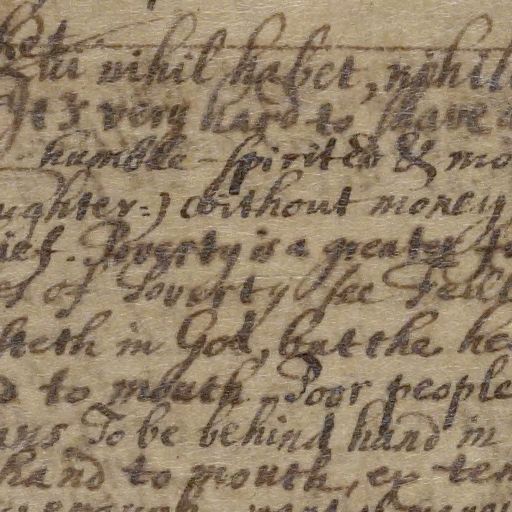 ket
Qui nihil habet, nihil
It is very hard to have a
humble-spirited & mo
ughter=) without money
ief. Poverty is a greater
es of Poverty see Fell
steth in God, but the he
d to mouth. Poor people
ays To be behind hand in
hand to mouth, ex tem